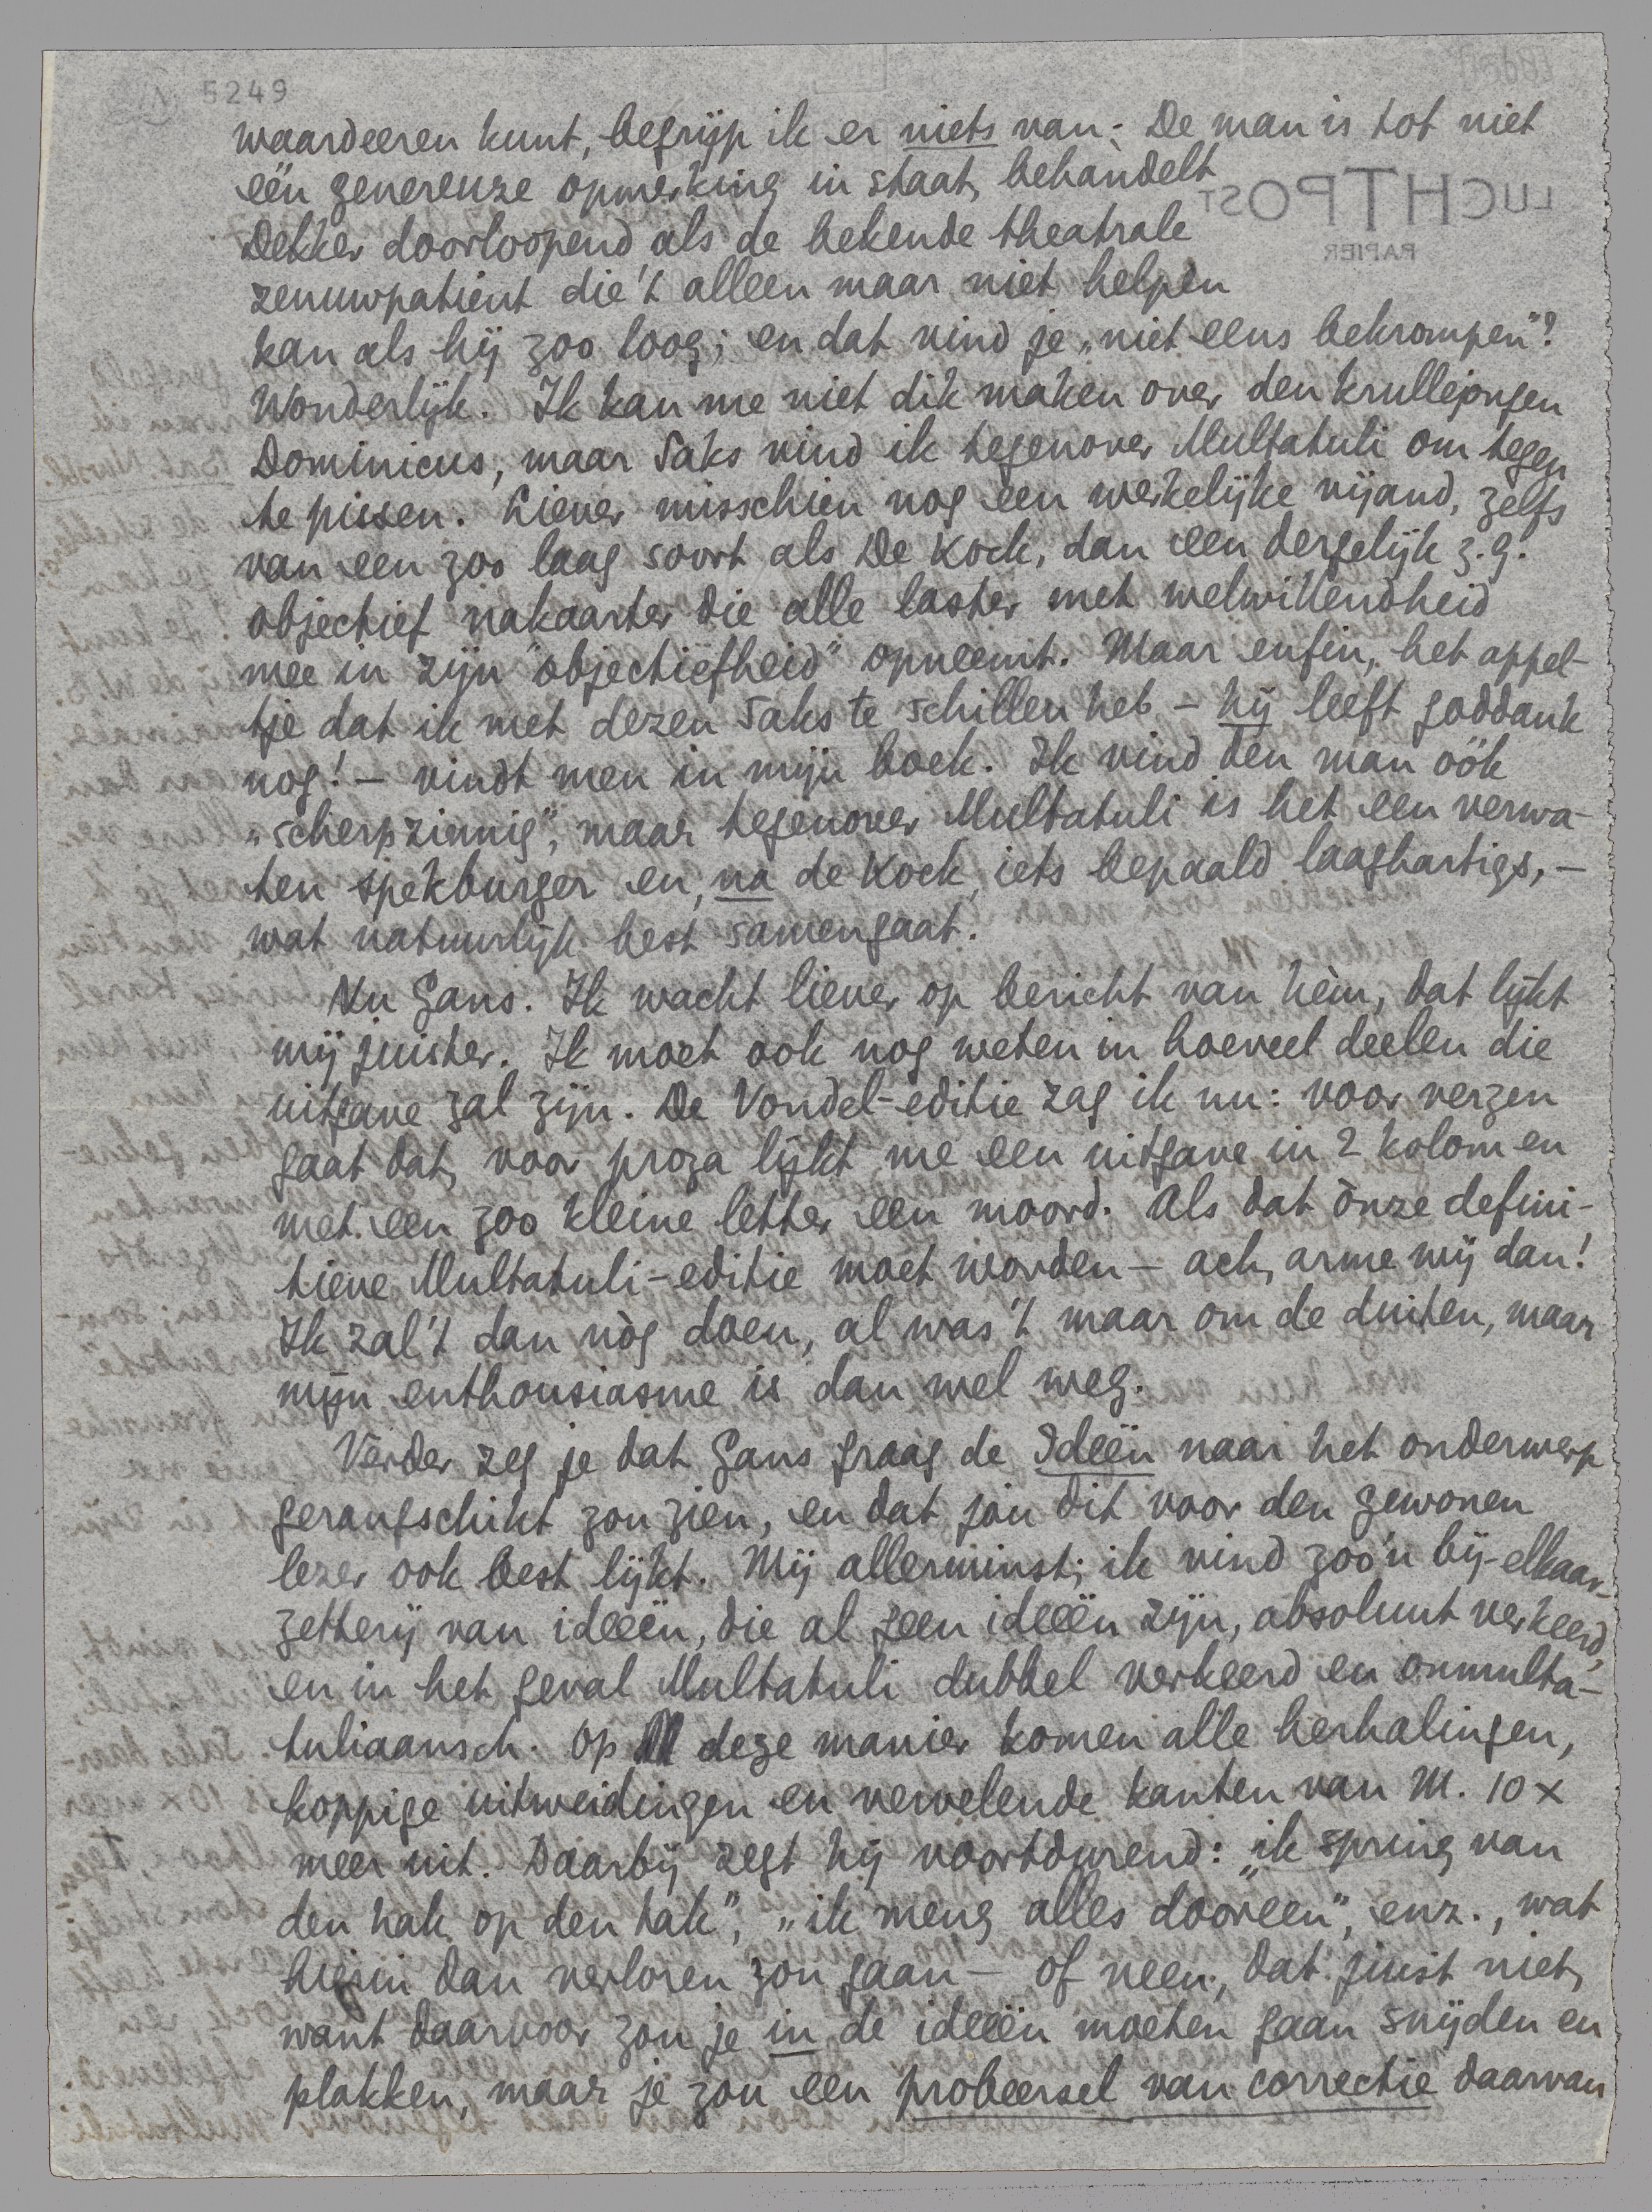 5249
waardeeren kunt, begrijp ik er niets van. De man is tot niet
één genereuze opmerking in staat, behandelt
Dekker doorloopend als de bekende theatrale
zenuwpatient die 't alleen maar niet helpen
kan als hij zoo loog; en dat vind je „niet eens bekrompen"?
Wonderlijk. Ik kan me niet dik maken over den krullejongen
Dominicus, maar Saks vind ik tegenover Multatuli om tegen
te pissen. Liever misschien nog een werkelijke vijand, zelfs
van een zoo laag soort als De Kock, dan een dergelijk z.g.
objectief nakaarter die alle laster met welwillendheid
mee in zijn "objectiefheid" opneemt. Maar enfin, het appel-
tje dat ik met dezen Saks te schillen heb – hij leeft goddank
nog! – vindt men in mijn boek. Ik vind den man óók
„scherpzinnig", maar tegenover Multatuli is het een verwa-
ten spekburger en, na de Kock, iets bepaald laaghartigs, –
wat natuurlijk best samengaat.
Nu Gans. Ik wacht liever op bericht van hèm, dat lijkt
mij juister. Ik moet ook nog weten in hoeveel deelen die
uitgave zal zijn. De Vondel-editie zag ik nu: voor verzen
gaat dat, voor proza lijkt me een uitgave in 2 kolomen
met een zoo kleine letter een moord. Als dat ònze defini-
tieve Multatuli-editie moet worden – ach, arme wij dan!
Ik zal 't dan nòg doen, al was 't maar om de duiten, maar
mijn enthousiasme is dan wel weg.
Verder zeg je dat Gans graag de Ideën naar het onderwerp
gerangschikt zou zien, en dat jou dit voor den gewonen
lezer ook best lijkt. Mij allerminst; ik vind zoo'n bij-elkaar-
zetterij van ideeën, die al geen ideeën zijn, absoluut verkeerd,
en in het geval Multatuli dubbel verkeerd en onmulta-
tuliaansch. Op deze manier komen alle herhalingen,
koppige uitweidingen en vervelende kanten van M. 10 x
meer uit. Daarbij zegt hij voortdurend: „ik spring van
den hak op den tak", „ik meng alles dooreen", enz., wat
hierin dan verloren zou gaan – of neen, dat juist niet,
want daarvoor zou je in de ideeën moeten gaan snijden en
plakken, maar je zou een probeersel van correctie daarvan
LUCHTPOST
PAPIER